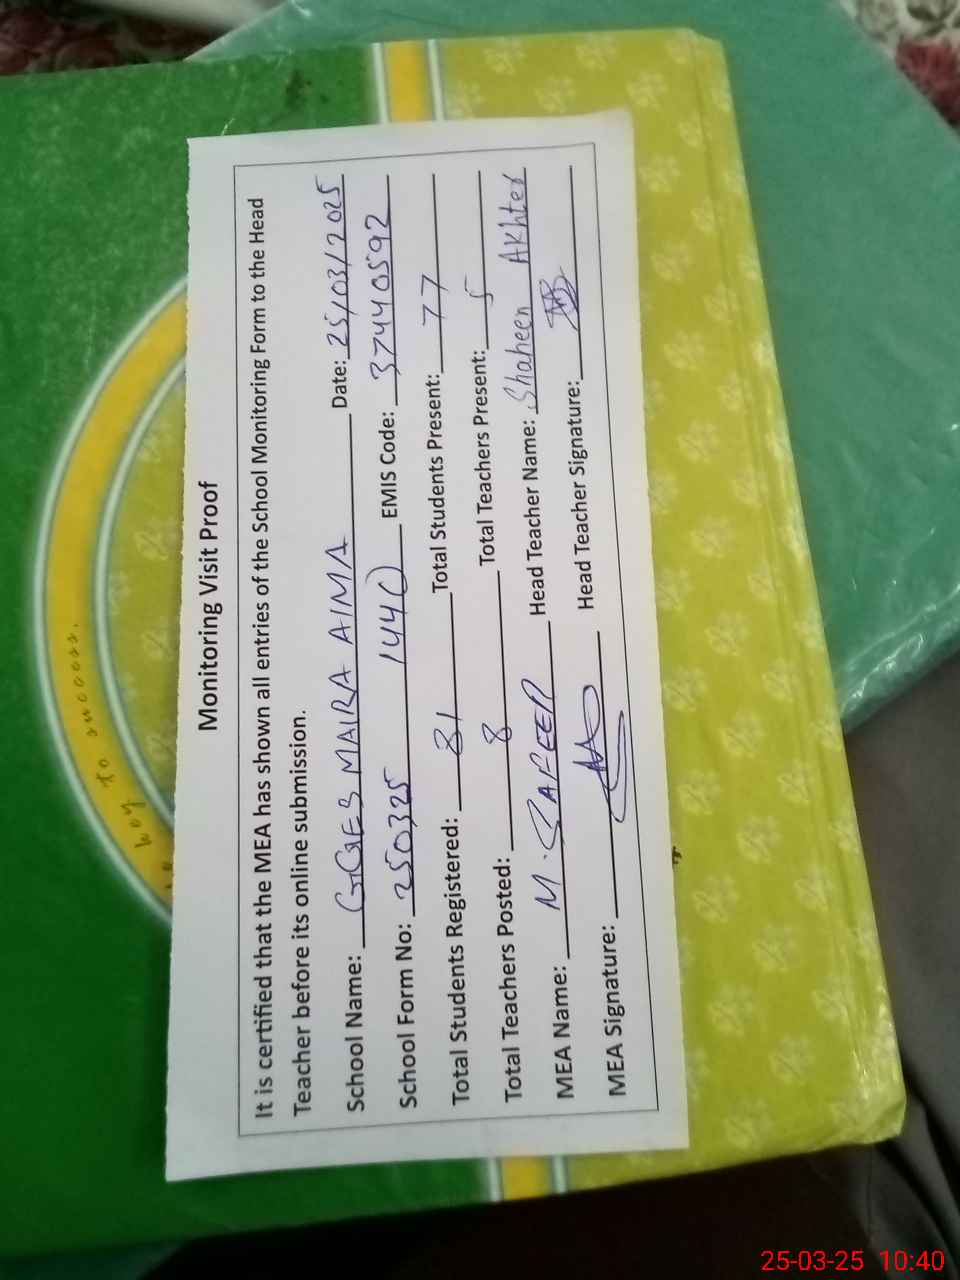 Monitoring Visit Proof
It is certified that the MEA has shown all entries of the School Monitoring Form to the Head
Teacher before its online submission.
School Name: GGES MAIRA AIMA Date: 25/03/2025
School Form No: 250325 1440 EMIS Code: 37440592
Total Students Registered: 81 Total Students Present: 77
Total Teachers Posted: 8 Total Teachers Present: 5
MEA Name: M. SAFEER Head Teacher Name: Shaheen Akhter
MEA Signature: Head Teacher Signature:
key to success.
25-03-25 10:40